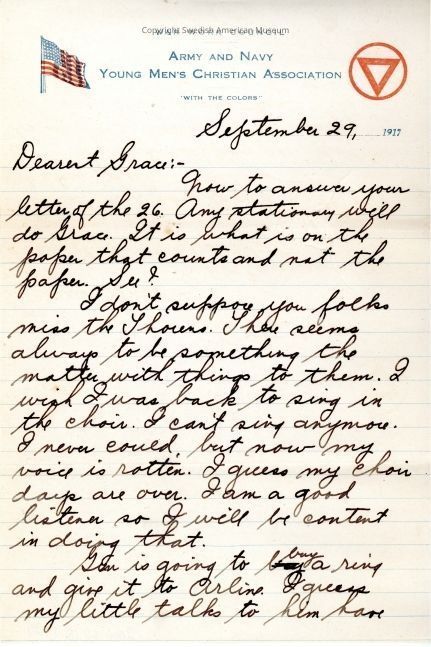 Copyright Swedish American Museum
ARMY AND NAVY
YOUNG MEN'S CHRISTIAN ASSOCIATION
"WITH THE COLORS"
September 29, 1917
Dearest Grace:-
Now to answer your
letter of the 26. Any stationary will
do Grace. It is what is on the
paper that counts and not the
paper. See?
I don't suppose you folks
miss the Thorens. There seems
always to be something the
matter with things to them. I
wish I was back to sing in
the choir. I can't sing anymore.
I never could, but now my
voice is rotten. I guess my choir
days are over. I am a good
listener so I will be content
in doing that.
is going to buy a ring
and give it to Arline. I guess
my little talks to him have